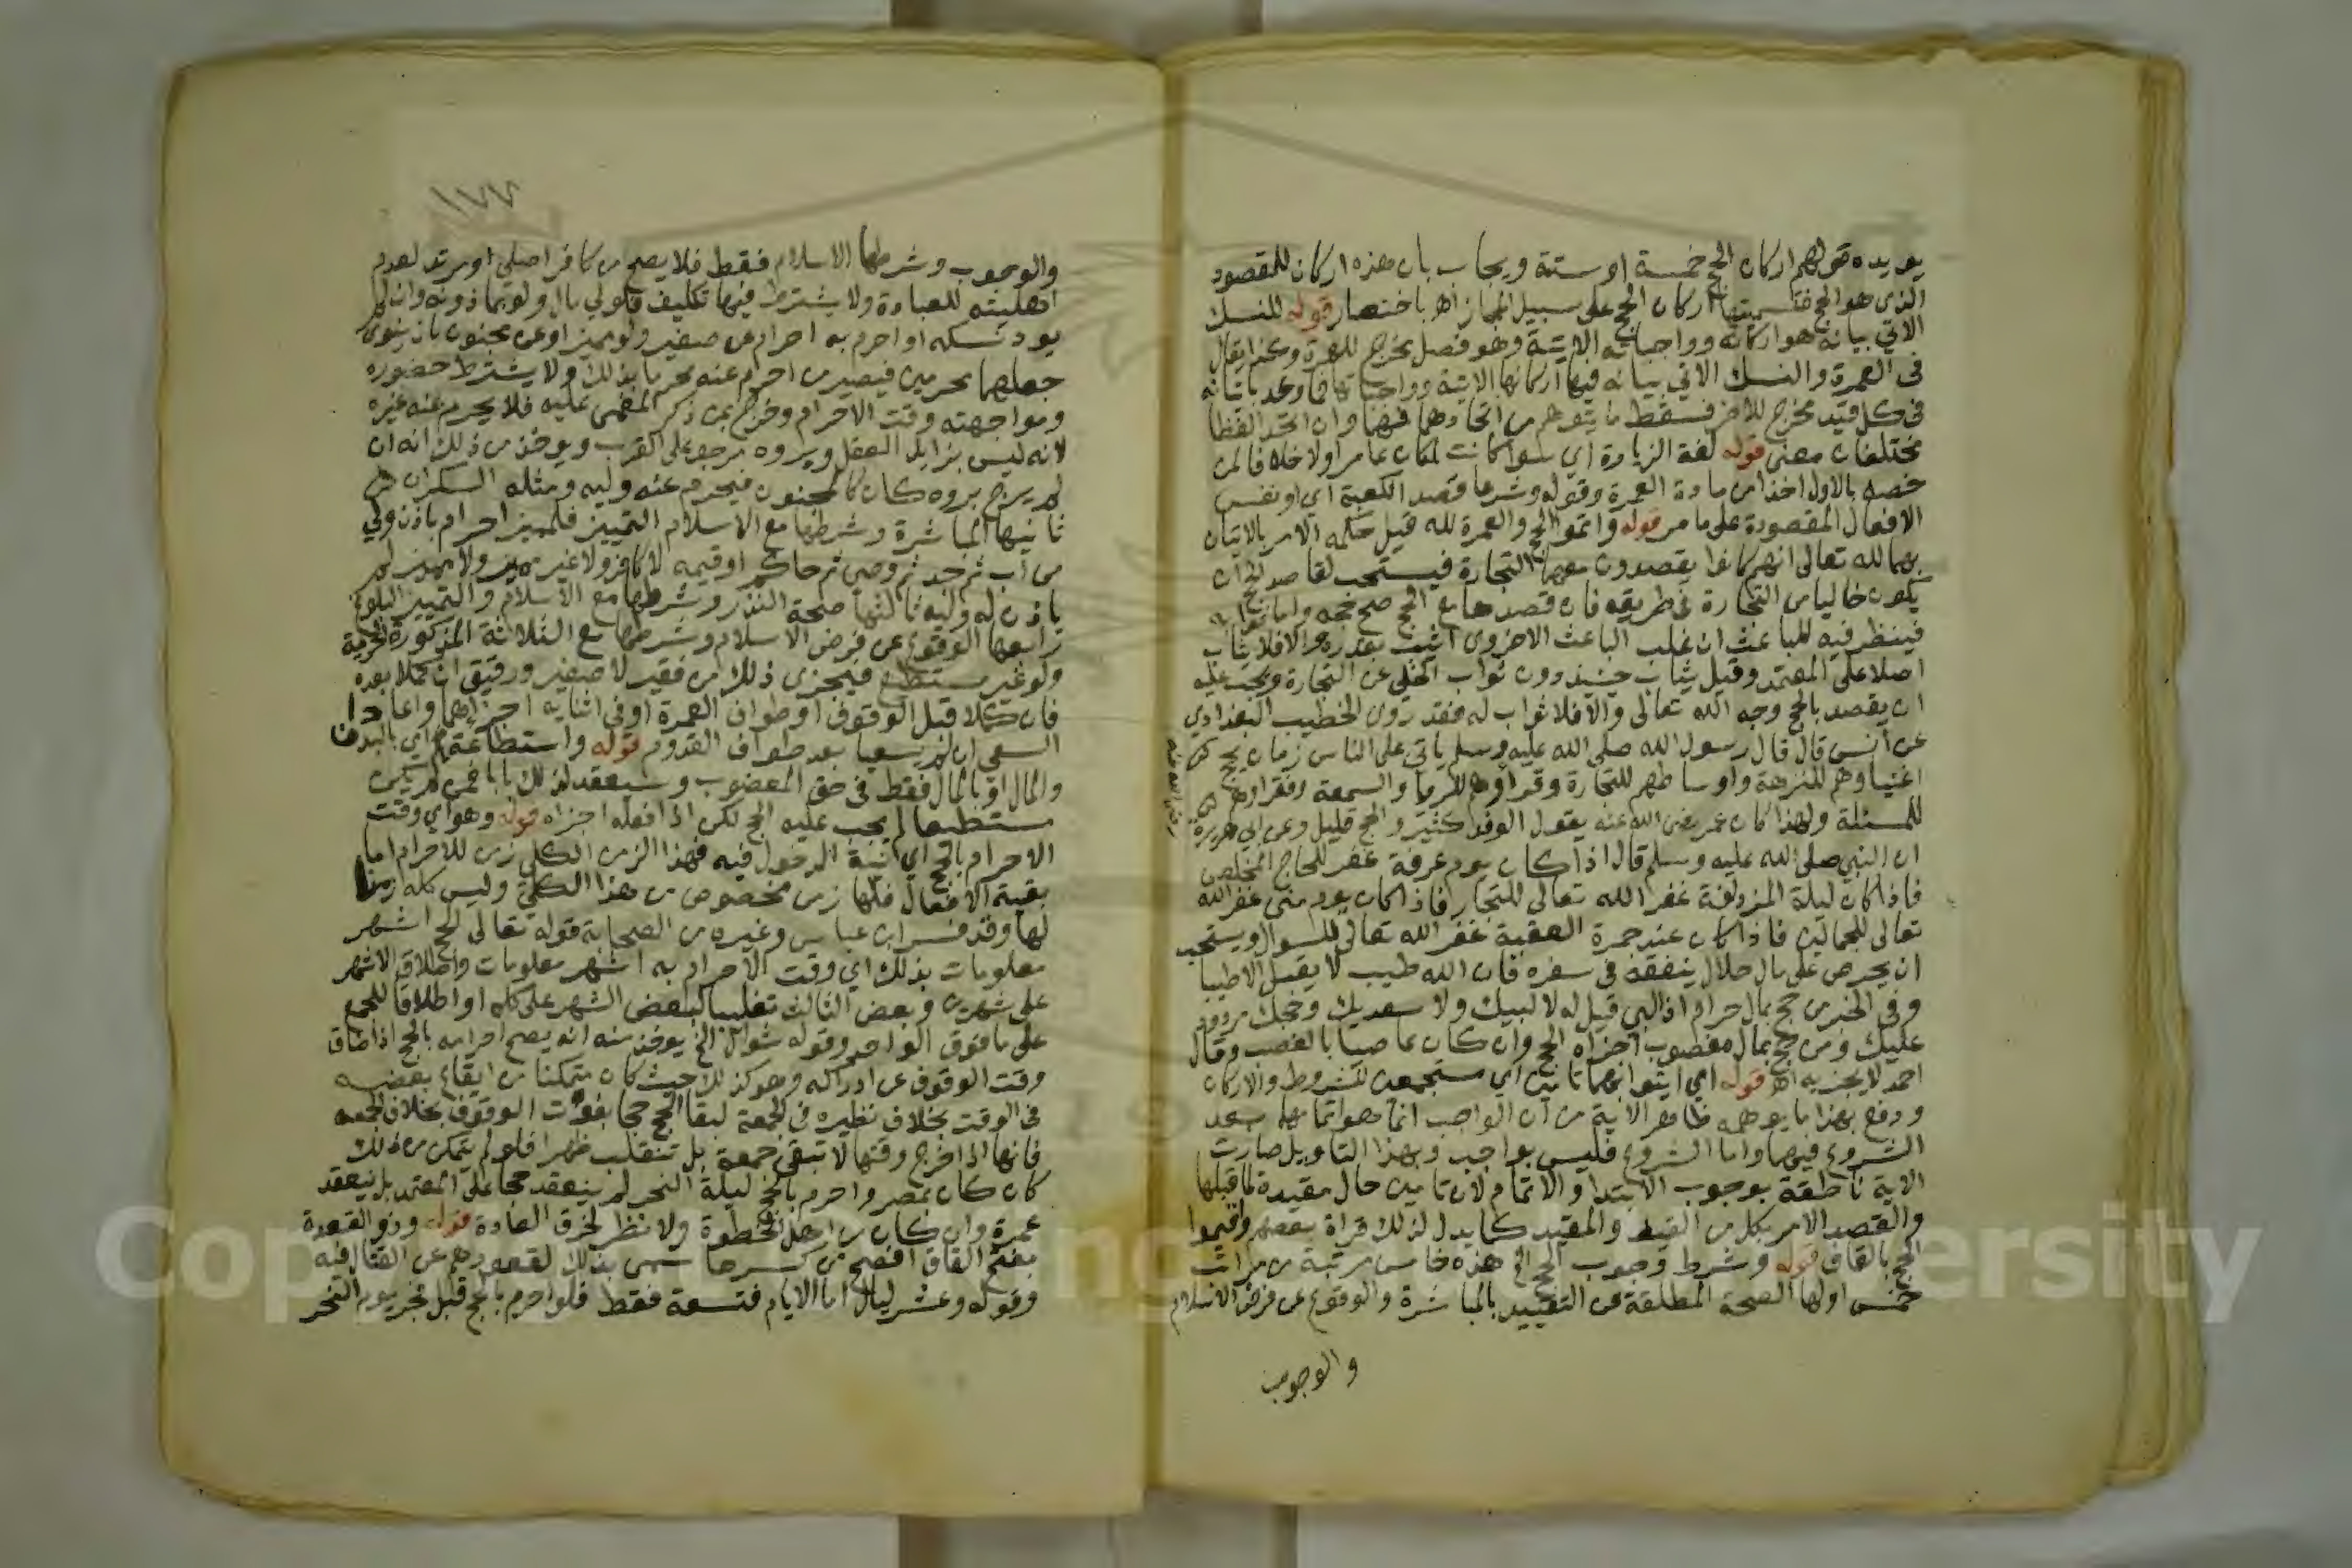 يويده قولهم اركان الحج خمسة او ستة ويجاب بان هذه اركان للمقصود
الذى هو الحج فتسميتها اركان الحج على سبيل المجاز اهـ باختصار قوله للنسك
الاتي بيانه هو اركانه وواجباته الاتية وهو فصل يخرج للعمرة وكذا يقال
فى العمرة والنسك الاتي بيانه فيها اركانها الاتية وواجباتها
فى كل قيد مخرج للاخر فسقط ما يتوهم من اتحادهما فهما وان اتحد لفظا
مختلفان معنى قوله لغة الزيارة اي سوا كانت لمكان عامر اولا خلافا لمن
خصه بالاول اخذا من مادة العمرة وقوله وشرعا قصد الكعبة اي او نفس
الافعال المقصودة على ما مر قوله واتموا الحج والعمرة لله قيل حكمه الامر بالاتيان
بهما لله تعالى انهم كانوا يقصدون معهما التجارة فيستحب لقاصد الحج ان
يكون خاليا من التجارة فى طريقه فان قصدها مع الحج صح حجه واما ثوابه
فينظر فيه للباعث ان غلب الباعث الاخروى اثيب بقدره والا فلا يثاب
اصلا على المعتمد وقيل يثاب حينيذ دون ثواب المخلي عن التجارة ويجب عليه
ان يقصد بالحج وجه الله تعالى والا فلا ثواب له فقد روى الخطيب البغدادي
عن أنس قال قال رسول الله صلى الله عليه وسلم ياتي على الناس زمان يحج
اغنياوهم للنزهة واوساطهم للتجارة وقراوهم للريا والسمعة وفقراوهم
للمسئلة ولهذا كان عمر رضى الله عنه يقول الوفد كثير والحج قليل وعن ابي هريرة
ان النبي صلى الله عليه وسلم قال اذا كان يوم عرفة غفر للحاج المخلص
فاذا كان ليلة المزدلفة غفر الله تعالى للتجار فاذا كان يوم منى غفر الله
تعالى للجمالين فاذا كان عند جمرة العقبة غفر الله تعالى للسوال ويستحب
ان يحرص على مال حلال ينفقه فى سفره فان الله طيب لا يقبل الا طيبا
وفى الخبر من حج بمال حرام اذا لبي قيل له لا لبيك ولا سعديك وحجك مردود
عليك ومن حج بمال مغصوب اجزاه الحج وان كان عاصيا بالغصب وقال
احمد لا يجزيه اهـ قوله اي ايتوا بهما تامين اي مستجمعين للشروط والاركان
ودفع بهذا ما يوهمه ظاهر الاية من ان الواجب انما هو اتمامهما بعد
الشروع فيهما واما الشروع فليس بواجب وبهذا التاويل صارت
الاية ناطقة بوجوب الابتدا والاتمام لان تامين حال مقيدة لما قبلها
والقصد الامر بكل من القيد والمقيد كما يدل لذلك قراة بعضهم واقيموا
الحج بالقاف قوله وشرط وجوب الحج الخ هذه خامس مرتبة من مراتب
خمس اولها الصحة المطلقة عن التقييد بالمباشرة والوقوع عن فرض الاسلام
والوجوب
١٧٢
والوجوب وشرطها الاسلام فقط فلا يصح من كافر اصلي او مرتد لعدم
اهليته للعبادة ولا يشترط فيها تكليف فلولي مال ولو بماذونه وان لم
يود نسكه او احرم به احرام عن صغير ولو مميز او عن مجنون بان ينوى
جعلهما محرمين فيصير من احرم عنه محرما بذلك ولا يشترط حضوره
ومواجهته وقت الاحرام وخرج بمن ذكر المغمى عليه فلا يحرم عنه غيره
لانه ليس بزايل العقل وبروه مرجو على القرب ويوخذ من ذلك انه ان
لم يرج بروه كان كالمجنون فيحرم عنه وليه ومثله السكران
ثانيها المباشرة وشرطها مع الاسلام التمييز فلمميز احرام باذن ولي
من اب ثم جد ثم وصى ثم حاكم او قيمه لا كافر ولا غير مميز ولا مميز لم
ياذن له وليه ثالثها صحة النذر وشرطها مع الاسلام والتمييز البلوغ
رابعها الوقوع عن فرض الاسلام وشرطها مع الثلاثة المذكورة الحرية
ولو غير مستطيع فيجزى ذلك من فقير لا صغير ورقيق ان كملا بعده
فان كملا قبل الوقوف او طواف العمرة او فى اثنايه اجزاهما واعادا
السعى ان لم يسعيا بعد طواف القدوم قوله واستطاعة اي بالبدن
والمال او بالمال فقط فى حق المعضوب وسيعقد لذلك بابا فمن لم يكن
مستطيعا لم يجب عليه الحج لكن اذا فعله اجزاه قوله وهو اي وقت
الاحرام بالحج اي نية الدخول فيه فهذا الزمن الكلي زمن للاحرام اما
بقية الافعال فلها زمن مخصوص من هذا الكلي وليس كله زمنا
لها وقد فسر ابن عباس وغيره من الصحابة قوله تعالى الحج اشهر
معلومات بذلك اي وقت الاحرام به اشهر معلومات واطلاق الاشهر
على شهرين وبعض الثالث تغليبا لبعض الشهر على كله او اطلاقا للجمع
على ما فوق الواحد وقوله شوال الخ يوخذ منه انه يصح احرامه بالحج اذا ضاق
وقت الوقوف عن ادراكه وهو كذلك حيث كان متمكنا من ايقاع بعضه
فى الوقت بخلاف نظيره فى الجمعة لبقا الحج حجا بفوات الوقوف بخلاف الجمعه
فانها اذا خرج وقتها لا تبقى جمعة بل تنقلب ظهرا فلو لم يتمكن من ذلك
كان كان بمصر واحرم بالحج ليلة النحر لم ينعقد حجا على المعتمد بل ينعقد
عمرة وان كان من اهل الخطوة ولا نظر لخرق العادة قوله وذو القعدة
بفتح القاف افصح من كسرها سمى بذلك لقعودهم عن القتال فيه
وقوله وعشر ليال اما الايام فتسعة فقط فلو احرم بالحج قبل فجر يوم النحر
Copy
ng
ersity